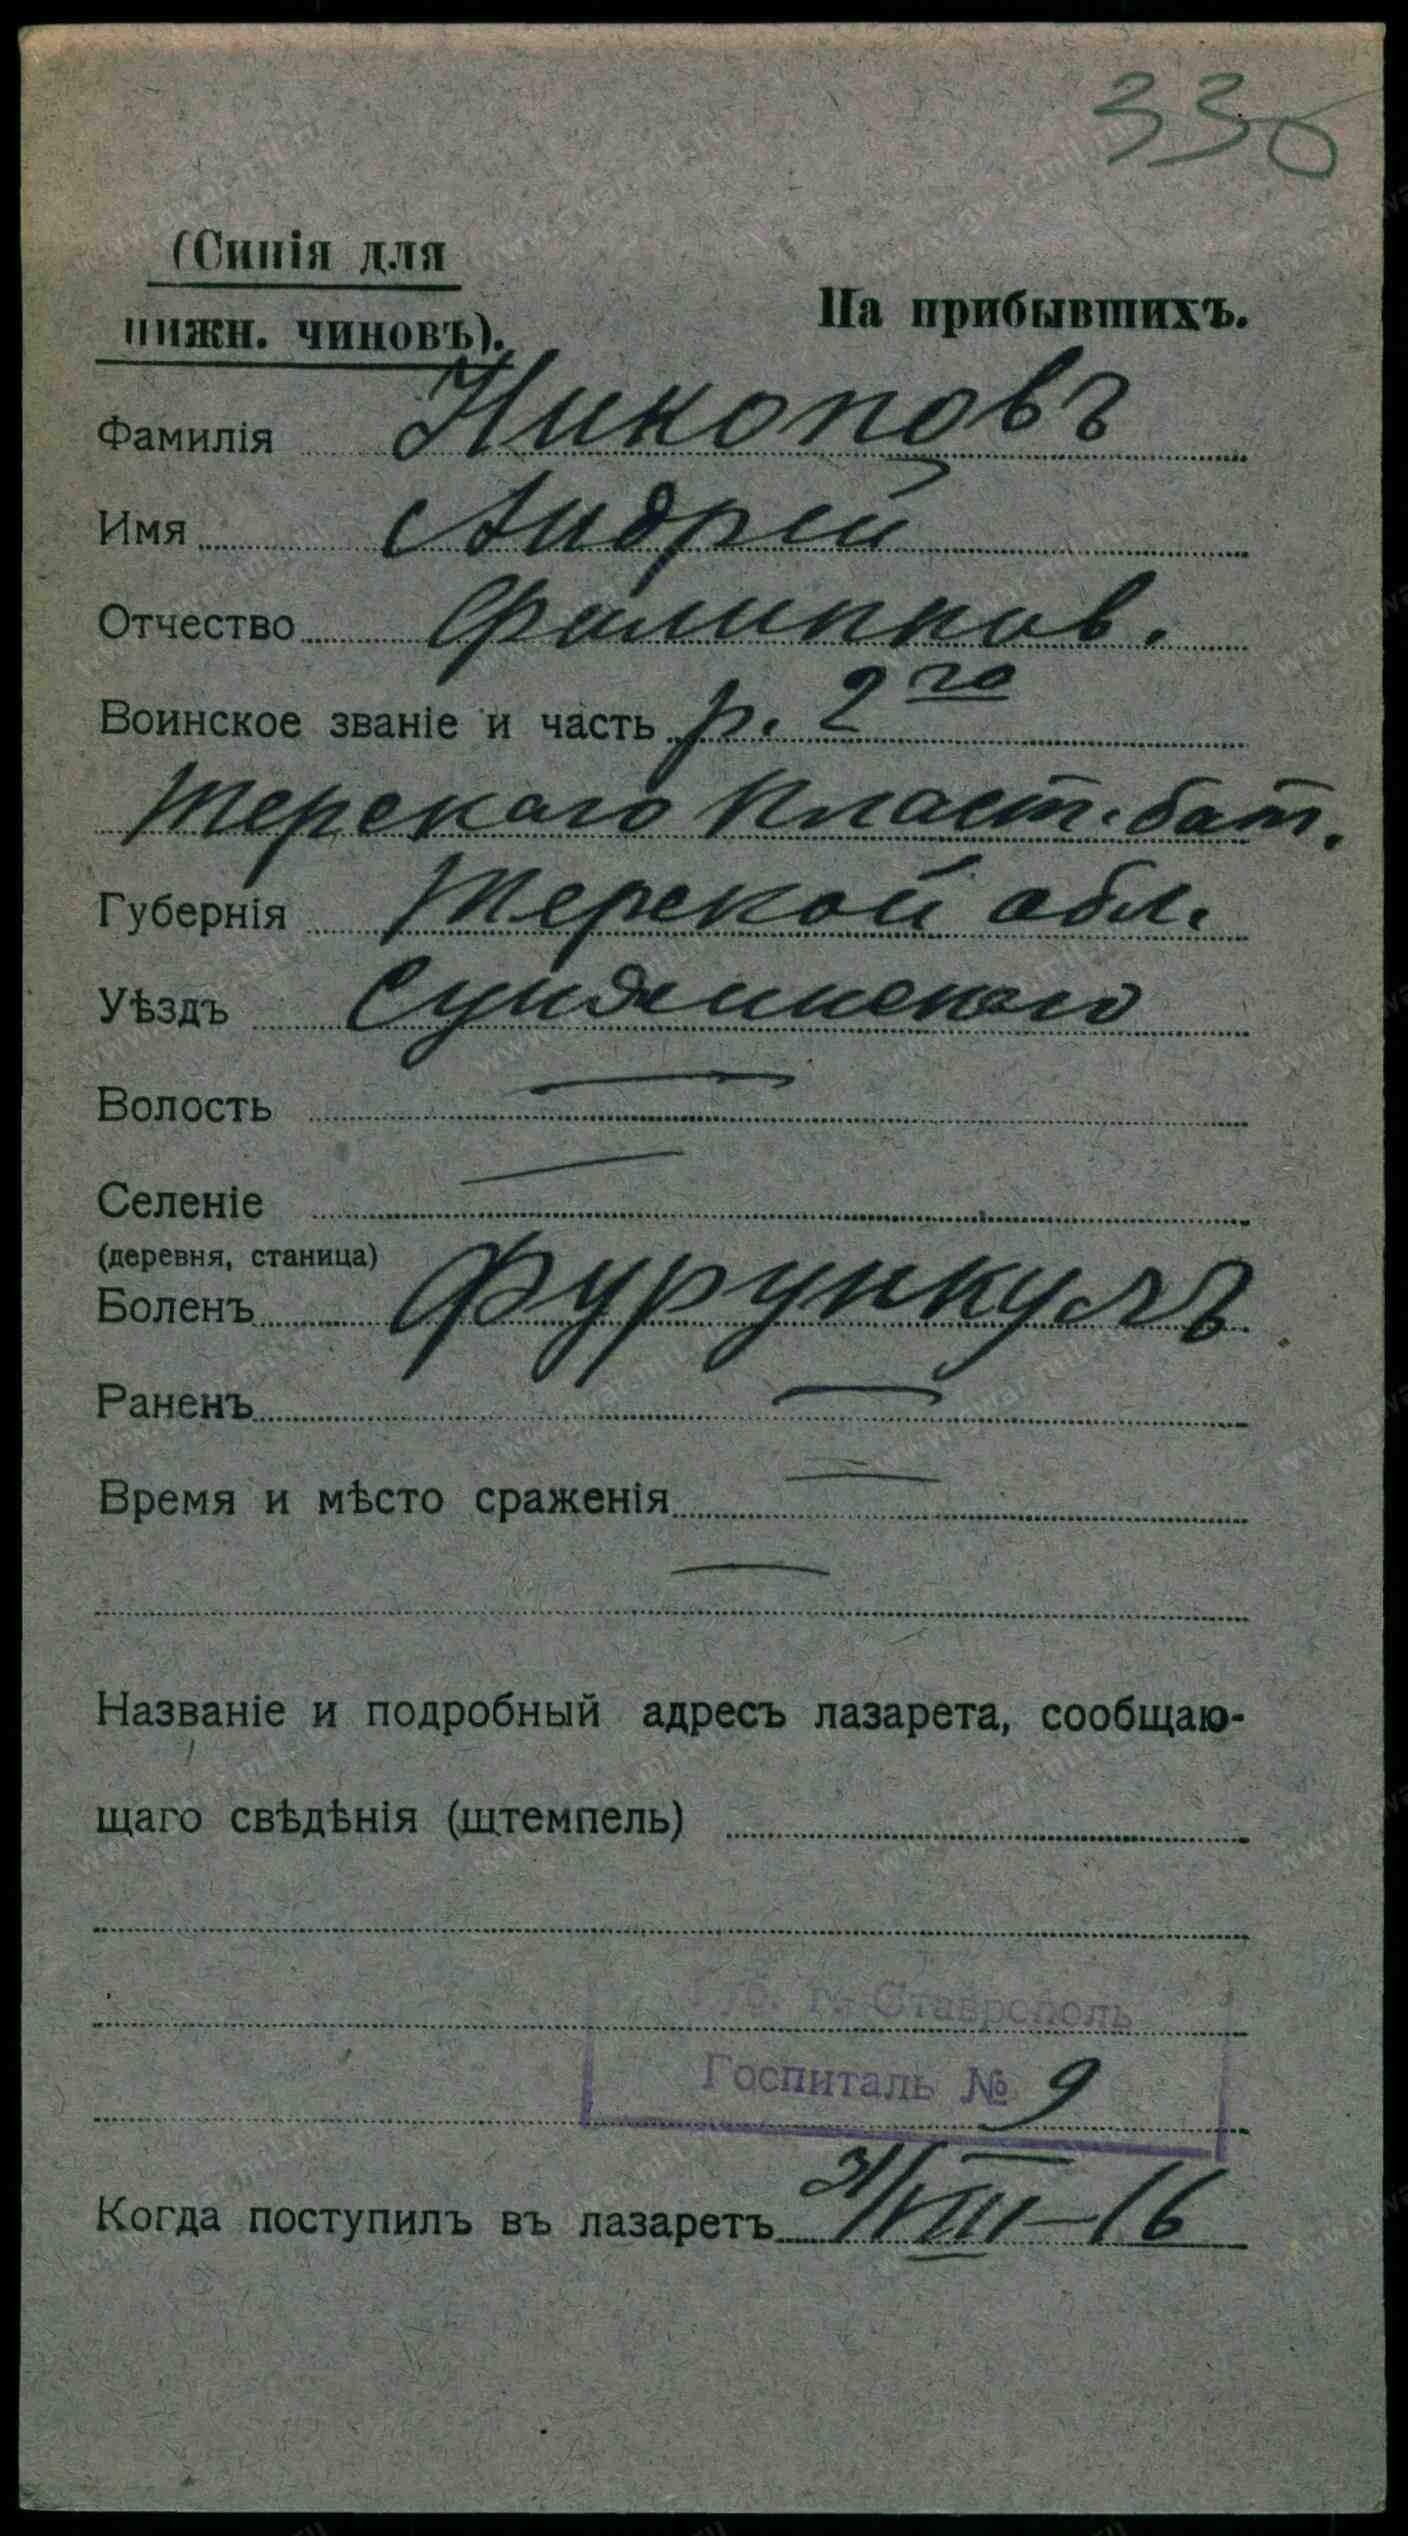 336
(Синія для
нижн. чиновъ).
На прибывшихъ.
Фамилія Никоновъ
Имя Андрей
Отчество Филиппов.
Воинское званіе и часть р. 2го
Терскаго Пласт. бат.
Губернія Терской обл.
Уѣздъ Сунженскаго
Волость —
Селеніе —
(деревня, станица)
Боленъ Фурункулъ
Раненъ —
Время и мѣсто сраженія —
—
Названіе и подробный адресъ лазарета, сообщаю-
щаго свѣдѣнія (штемпель)
Губ. г. Ставрополь
Госпиталь № 9
Когда поступилъ въ лазаретъ 31/VIII–16